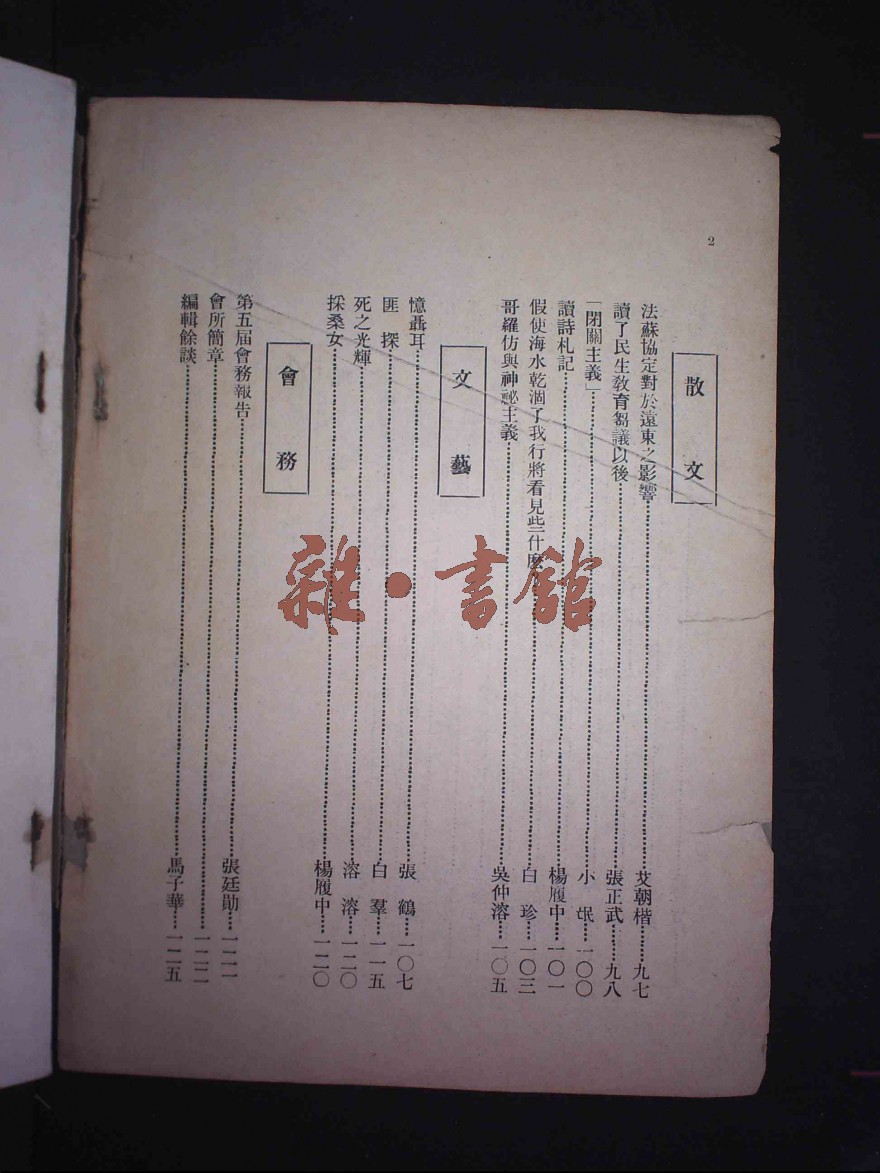 2
散文
法蘇協定對於遠東之影響……艾朝楷……九七
讀了民生敎育芻議以後……張正武……九八
「閉關主義」……小氓……一〇〇
讀詩札記……楊履中……一〇一
假使海水乾涸了我行將看見些什麼……白珍……一〇三
哥羅仿與神祕主義……吳仲溶……一〇五
文藝
憶聶耳……張鶴……一〇七
匪探……白羣……一一五
死之光輝……溶溶……一二〇
採桑女……楊履中……一二〇
會務
第五届會務報告……張廷勛……一二一
會所簡章……一二二
編輯餘談……馬子華……一二五
雜·書館